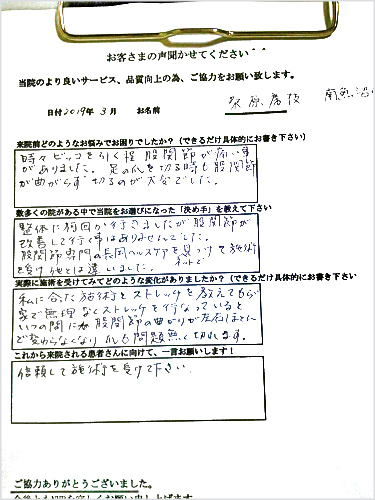 お客さまの声聞かせてください
当院のより良いサービス、品質向上の為、ご協力をお願い致します。
日付2019年 3月 お名前
来院前どのようなお悩みでお困りでしたか?(できるだけ具体的にお書き下さい)
時々ビッコを引く程 股関節が痛い事
がありました。足の爪を切る時も股関節
が曲がらず 切るのが大変でした。
数多くの院がある中で当院をお選びになった「決め手」を教えて下さい
整体に何回か行きましたが股関節が
改善して行く事はありませんでした。
股関節専門の長岡ヘルスケアを見つけて施術
ネットで
を受け他とは違いました。
実際に施術を受けてみてどのような変化がありましたか?(できるだけ具体的にお書き下さい
私に合た施術とストレッチを教えてもらい
家で無理なくストレッチを行なっていると
いつの間にか股関節の曲がりが左右ほとん
ど変わらなくなり 爪も問題無く切れます。
これから来院される患者さんに向けて、一言お願いします!
信頼して施術を受けて下さい
ご協力ありがとうございました。